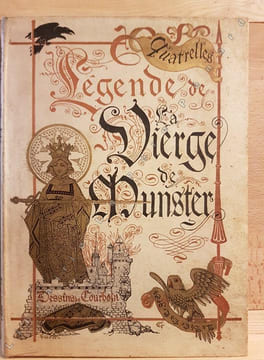 Quatrelles
Légende de
La
Vierge
de
Munster
Dessins de Courboin